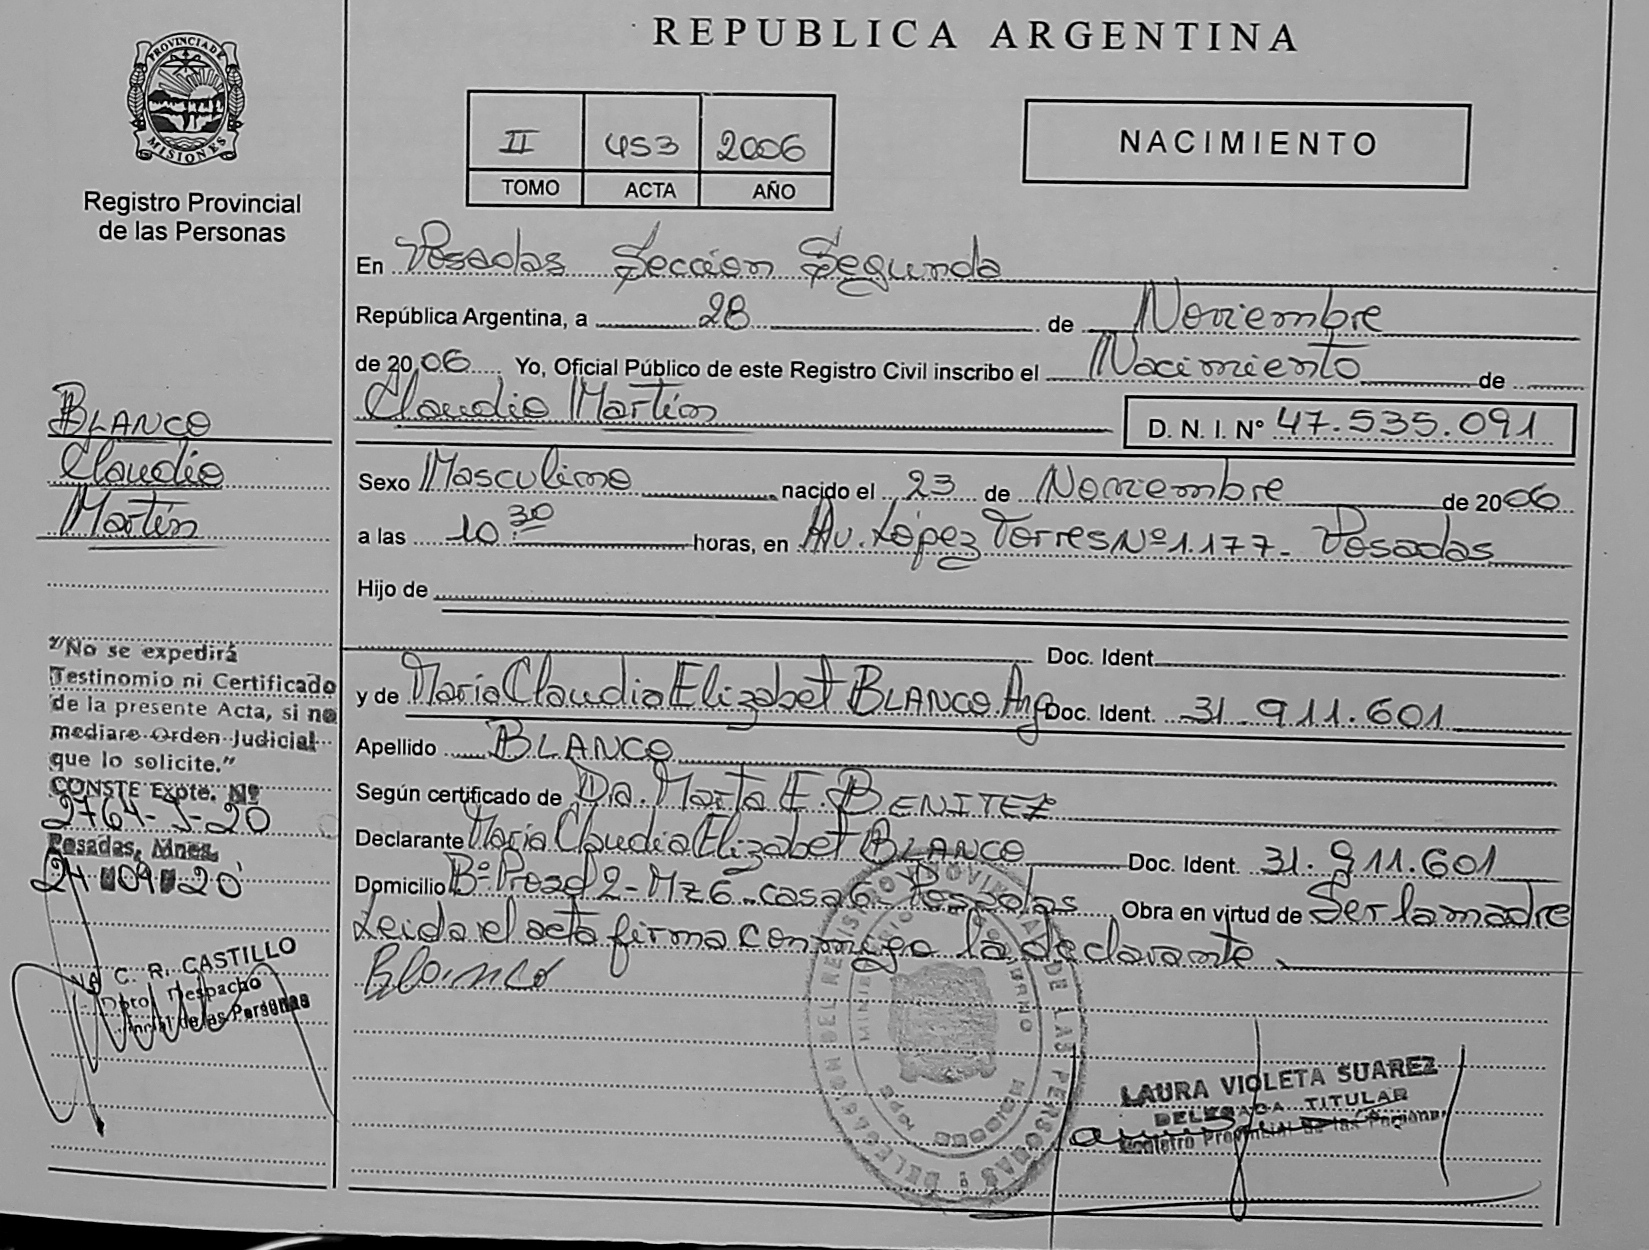 REPUBLICA ARGENTINA
PROVINCIA DE MISIONES
Registro Provincial
de las Personas
II 453 2006
TOMO ACTA AÑO
NACIMIENTO
En Posadas Sección Segunda
República Argentina, a 28 de Noviembre
de 2006 Yo, Oficial Público de este Registro Civil inscribo el Nacimiento de
Claudio Martín D. N. I. Nº 47.535.091
Sexo Masculino nacido el 23 de Noviembre de 2006
a las 10:30 horas, en Av. López Torres Nº 1.177- Posadas
Hijo de
Doc. Ident.
y de María Claudia Elizabet BLANCO Arg Doc. Ident. 31.911.601
Apellido BLANCO
Según certificado de Dra. Marta E. BENITEZ
Declarante María Claudia Elizabet BLANCO Doc. Ident. 31.911.601
Domicilio Bº Prosol 2- Mz 6 - casa 6 Posadas Obra en virtud de Ser la madre
Leida el acta firma conmigo la declarante.
Blanco
BLANCO
Claudio
Martín
"No se expedirá
Testinomio ni Certificado
de la presente Acta, si no
mediare Orden Judicial
que lo solicite."
CONSTE Expte. Nº
2764-J-20
Posadas, Mnes.
24 09 20
C. R. CASTILLO
Dpto. Despacho
de las Personas
LAURA VIOLETA SUAREZ
DELEGADA TITULAR
Registro Provincial de las Personas